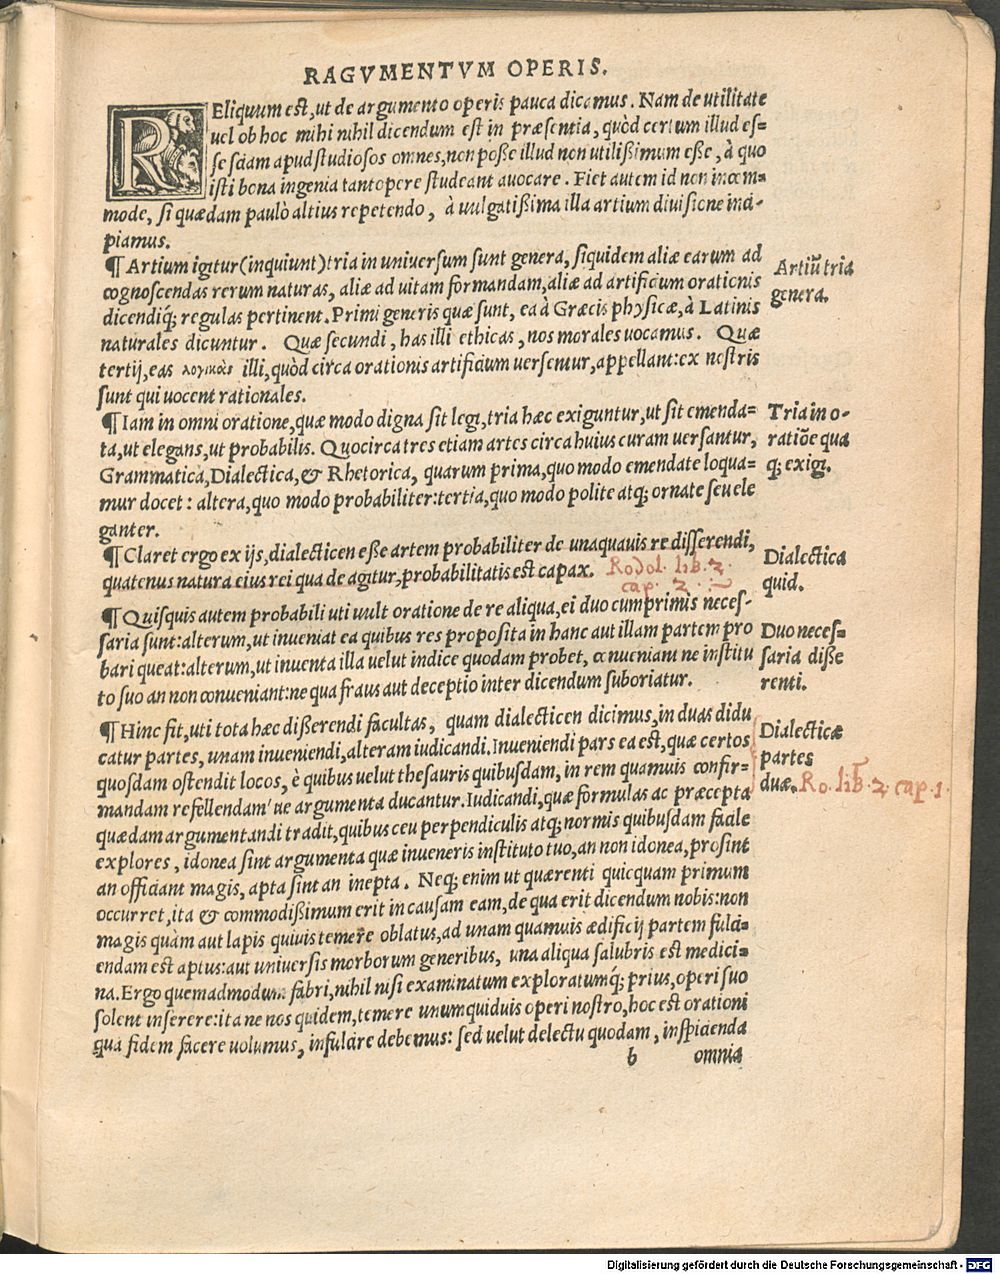 RAGVMENTVM OPERIS.
REliquum est, ut de argumento operis pauca dicamus. Nam de utilitate
uel ob hoc mihi nihil dicendum est in præsentia, quòd certum illud es=
se sciam apud studiosos omnes, non posse illud non utilißimum eße, à quo
isti bona ingenia tantopere studeant auocare. Fiet autem id non incom=
mode, si quædam paulò altius repetendo, à uulgatißima illa artium diuisione inci-
piamus.
¶ Artium igitur (inquiunt) tria in uniuersum sunt genera, siquidem aliæ earum ad
cognoscendas rerum naturas, aliæ ad uitam formandam, aliæ ad artificium orationis
dicendiq; regulas pertinent. Primi generis quæ sunt, ea à Græcis physicæ, à Latinis
naturales dicuntur. Quæ secundi, has illi ethicas, nos morales uocamus. Quæ
tertij, eas λογικὰς illi, quòd circa orationis artificium uersentur, appellant: ex nostris
sunt qui uocent rationales.
Artiū tria
genera.
¶ Iam in omni oratione, quæ modo digna sit legi, tria hæc exiguntur, ut sit emenda=
ta, ut elegans, ut probabilis. Quocirca tres etiam artes circa huius curam uersantur,
Grammatica, Dialectica, & Rhetorica, quarum prima, quo modo emendate loqua=
mur docet: altera, quo modo probabiliter: tertia, quo modo polite atq; ornate seu ele
ganter.
Tria in o-
ratiõe qua
q; exigi.
¶ Claret ergo ex ijs, dialecticen eße artem probabiliter de unaquauis re disserendi,
quatenus natura eius rei qua de agitur, probabilitatis est capax. Rodol. lib. 2.
cap. 2.
Dialectica
quid.
¶ Quisquis autem probabili uti uult oratione de re aliqua, ei duo cumprimis neces-
saria sunt: alterum, ut inueniat ea quibus res proposita in hanc aut illam partem pro
bari queat: alterum, ut inuenta illa uelut indice quodam probet, conueniant ne institu
to suo an non conueniant: ne qua fraus aut deceptio inter dicendum suboriatur.
Duo neces=
saria diße
renti.
¶ Hinc fit, uti tota hæc dißerendi facultas, quam dialecticen dicimus, in duas didu
catur partes, unam inueniendi, alteram iudicandi. Inueniendi pars ea est, quæ certos
quosdam ostendit locos, è quibus uelut thesauris quibusdam, in rem quamuis confir=
mandam refellendam' ue argumenta ducantur. Iudicandi, quæ formulas ac præcepta
quædam argumentandi tradit, quibus ceu perpendiculis atq; normis quibusdam facile
explores, idonea sint argumenta quæ inueneris instituto tuo, an non idonea, prosint
an officiant magis, apta sint an inepta. Neq; enim ut quærenti quicquam primum
occurret, ita & commodißimum erit in causam eam, de qua erit dicendum nobis: non
magis quàm aut lapis quiuis temere oblatus, ad unam quamuis ædificij partem fulci=
endam est aptus: aut uniuersis morborum generibus, una aliqua salubris est medici=
na. Ergo quemadmodum fabri, nihil nisi examinatum exploratumq; prius, operi suo
solent inserere: ita ne nos quidem, temere unumquiduis operi nostro, hoc est orationi
qua fidem facere uolumus, infulcire debemus: sed uelut delectu quodam, inspicienda
Dialecticæ
partes
duæ. Ro. lib. 2. cap. 1.
b omnia
Digitalisierung gefördert durch die Deutsche Forschungsgemeinschaft - DFG